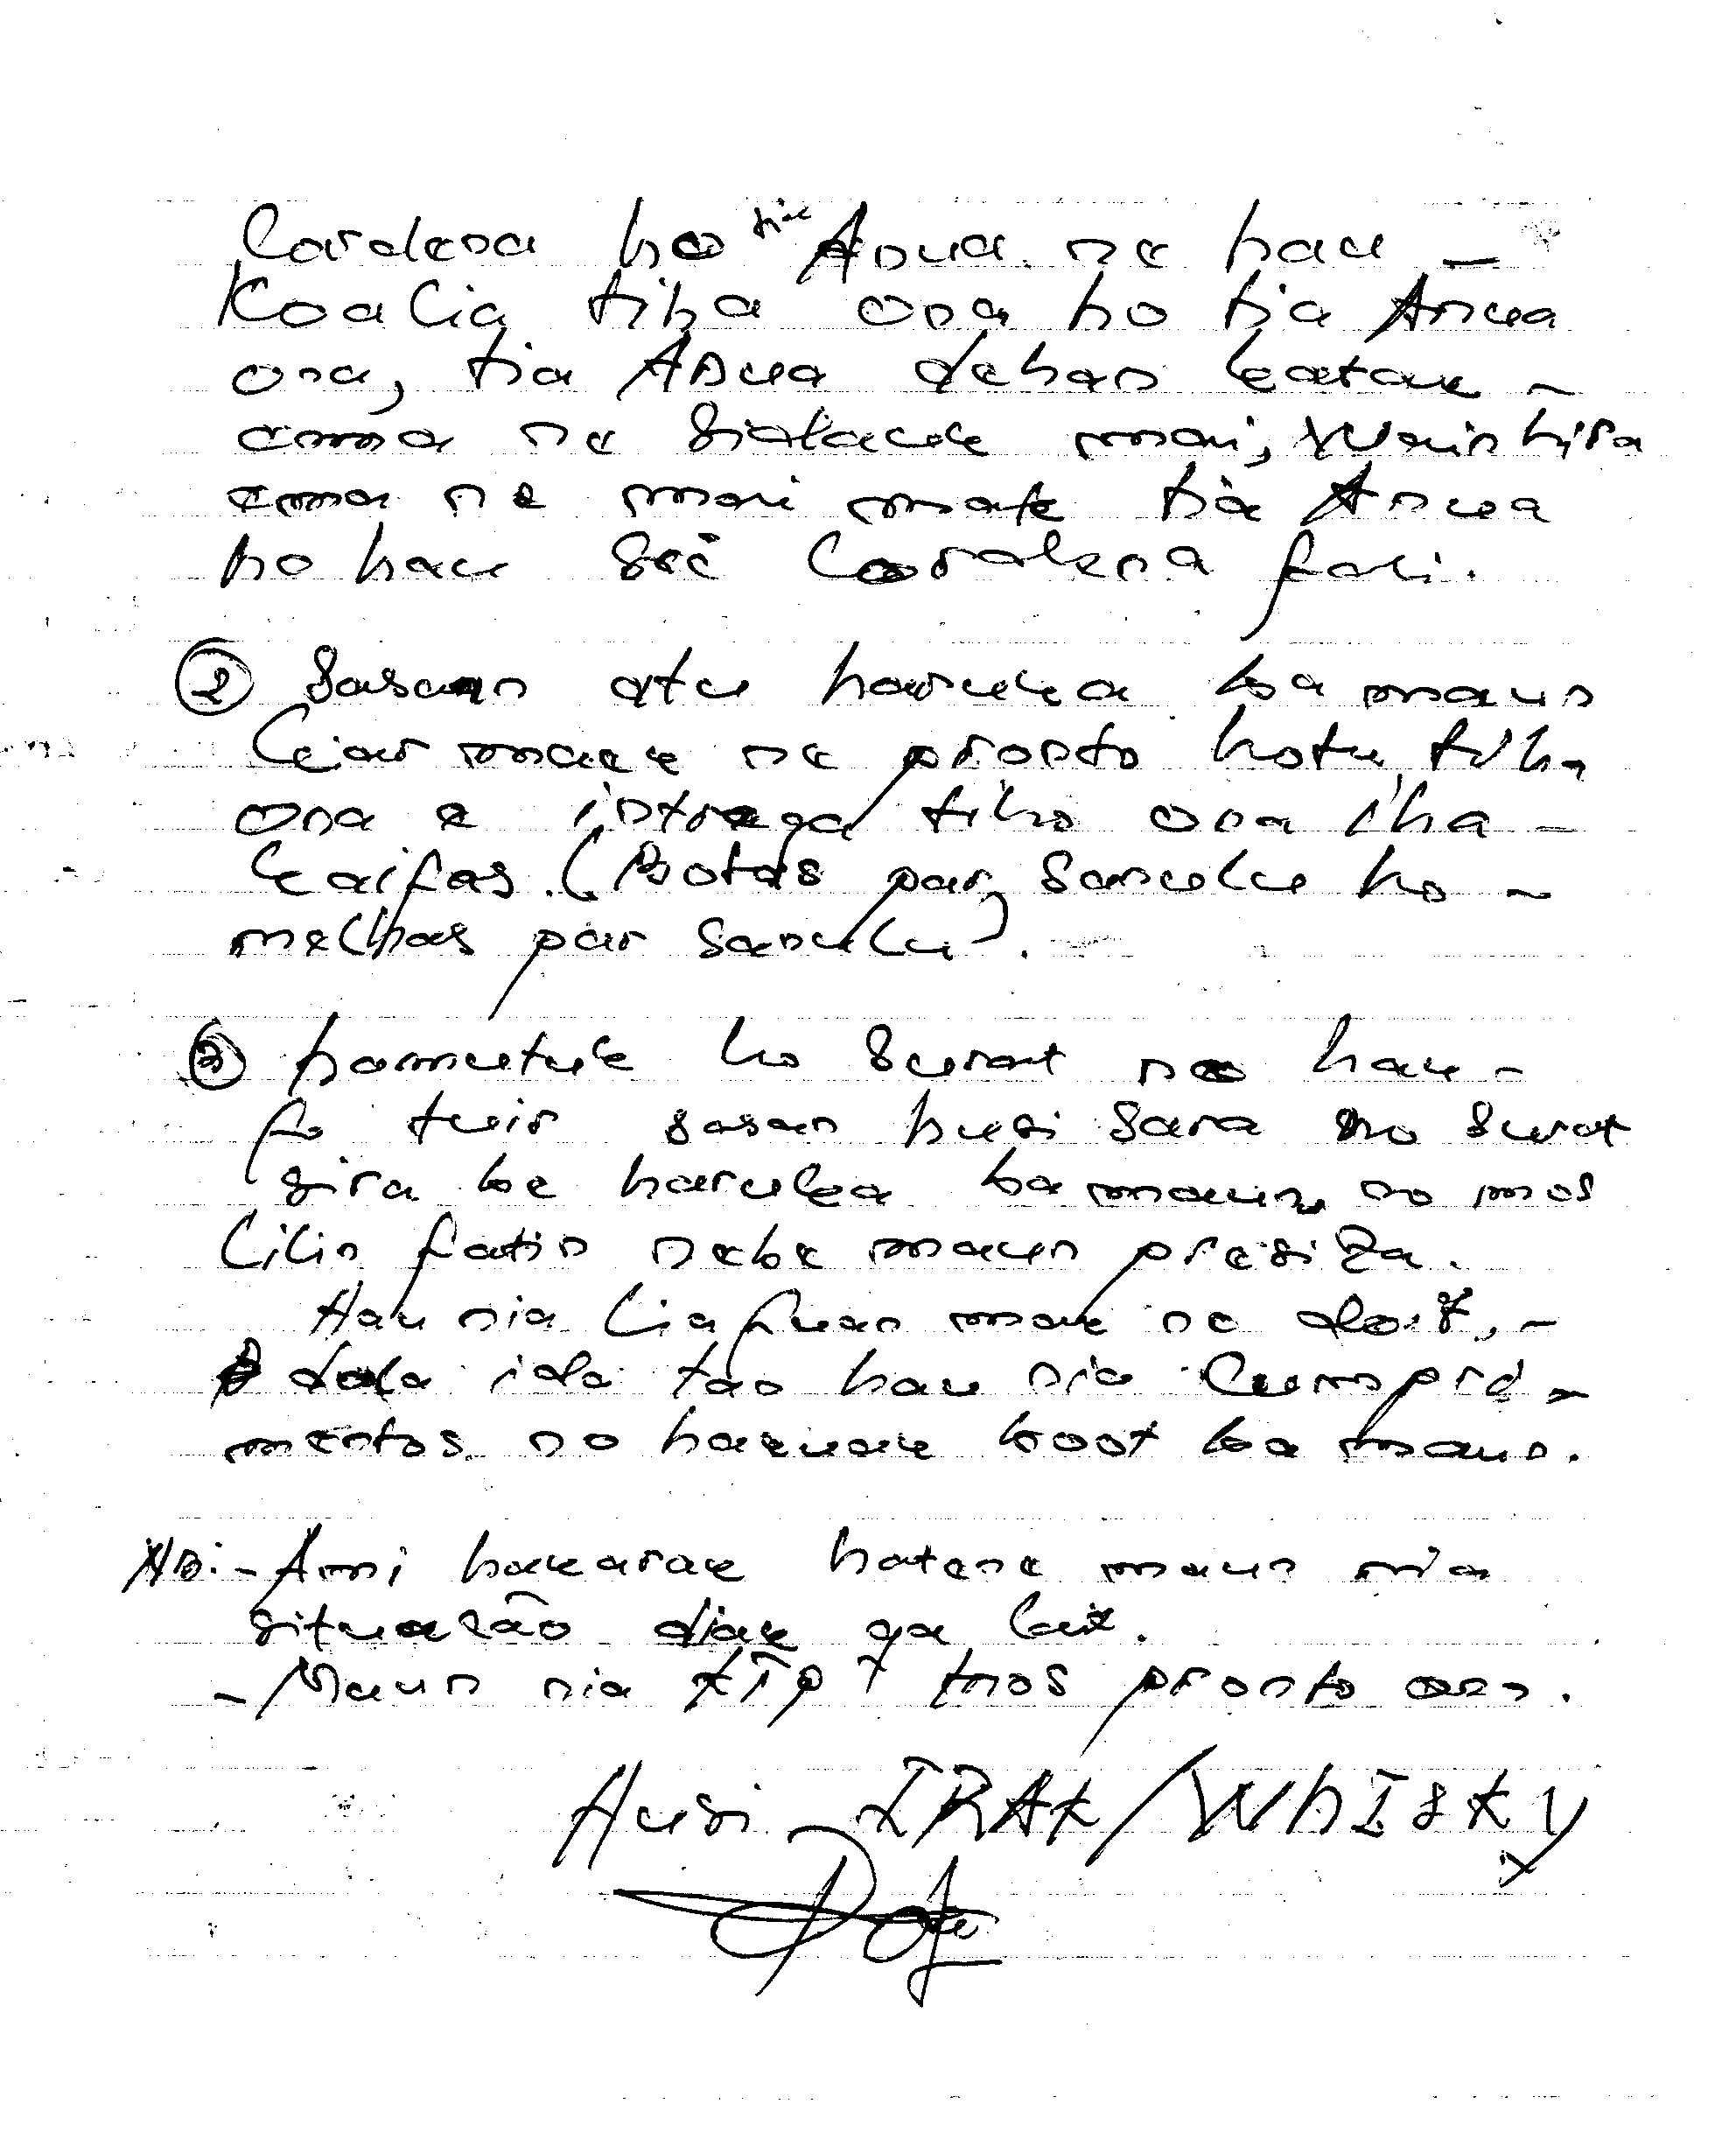 Cordena ho tia Anua ne hau -
Koalia tiha ona ho tia Anua
ona, tia Anua dehan katak -
ema ne sidauk mai, wainhira
ema ne mai mak tia Anua
ho hau sei Cordena fali.
② Sasan atu haruka ba maun
liar mak ne pronto hotu tiha
ona e intrega tiha ona iha -
Kaifas. (Botas par sanulu ho -
melhas par sanulu).
③ hamutuk ho surat ne hau -
fo tuir sasan husi Sara no surat
sira be haruka ba maun, no mos
lilin fatin nebe maun presiza.
Hau nia liafuan mak ne doit, -
dala ida tao hau nia Cumpri -
mentos no hakuak boot ba maun.
NB: - Ami hakarak hatene maun nia
situasão diak ga lae.
- Maun nia KTP mos pronto ona.
Husi IRAK/WhISKY